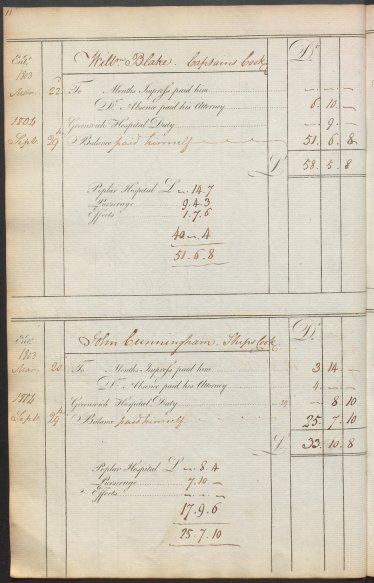 11
Entd. Willm Blake. Captains Cook Dr.
1803
Mar. 22 To Months Impress paid him
Do. Absence paid his Attorney 6 . 10 . —
1804 Greenwich Hospital Duty — . 9 . —
Sept. 29th Balance paid himself 51 . 6 . 8
£ 58 . 5 . 8
Poplar Hospital £ — . 14 . 7
Pursorage 9 . 4 . 3
Effects 1 . 7 . 6
40 — . 4
51 . 6 . 8
Entd. John Cunningham. Ships Cook Dr.
1803
Mar. 20 To Months Impress paid him 3 . 14 . —
Do. Absence paid his Attorney 4 . — . —
1804 Greenwich Hospital Duty — . 8 . 10
Sept. 29th Balance paid himself 25 . 7 . 10
£ 33 . 10 . 8
Poplar Hospital £ — . 8 . 4
Pursorage 7 . 10 . —
Effects
17 . 9 . 6
25 . 7 . 10